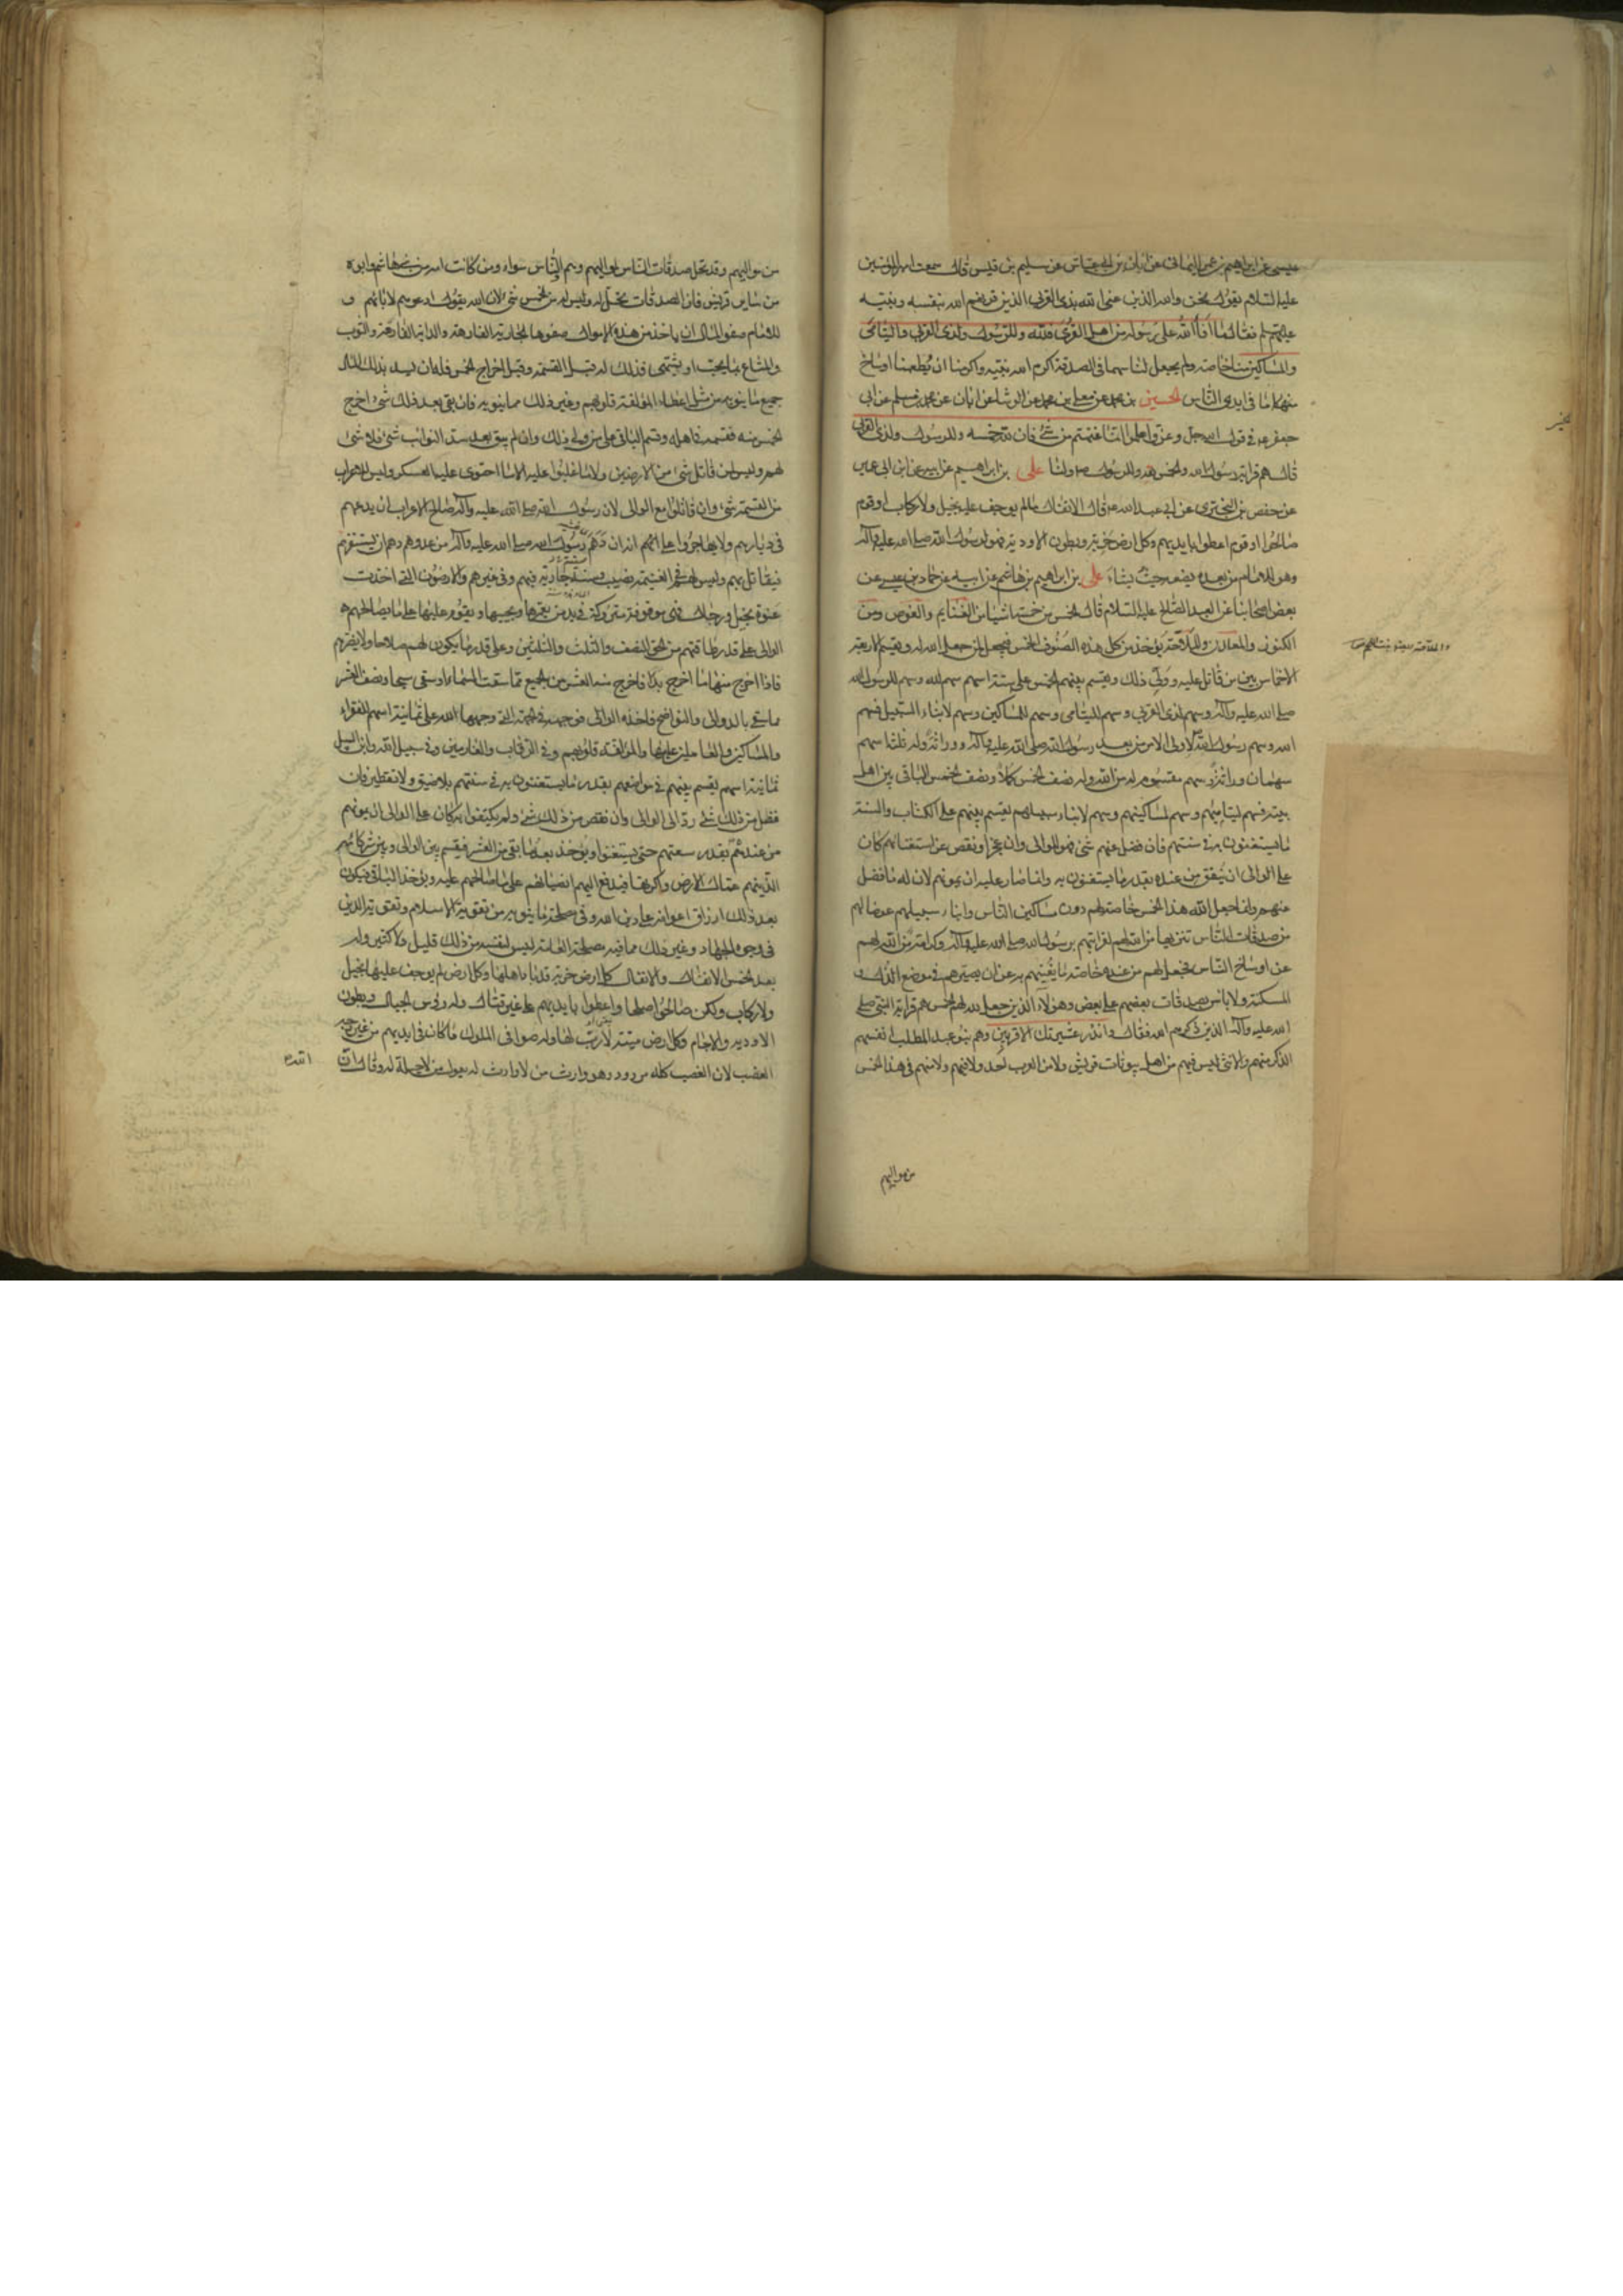 عيسى عن ابراهيم بن عمر اليماني عن ابان بن ابي عياش عن سليم بن قيس قال سمعت امير المؤمنين
عليه السلام يقول نحن والله الذين عنى الله بذي القربى الذين قرنهم الله بنفسه ونبيه
فقال ما افاء الله على رسوله من اهل القرى فلله وللرسول ولذي القربى واليتامى
والمساكين منا خاصة ولم يجعل لنا سهما في الصدقة اكرم الله نبيه واكرمنا ان يطعمنا اوساخ
ما في ايدي الناس الحسين بن محمد عن معلى بن محمد عن الوشا عن ابان عن محمد بن مسلم عن ابي
جعفر ع في قول الله عز وجل واعلموا انما غنمتم من شئ فان لله خمسه وللرسول ولذي القربى
قال هم قرابة رسول الله والخمس لله وللرسول ص ولنا علي بن ابراهيم عن ابيه عن ابن ابي عمير
عن حفص بن البختري عن ابي عبد الله ع قال الانفال ما لم يوجف عليه بخيل ولا ركاب او قوم
صالحوا او قوم اعطوا بايديهم وكل ارض خربة وبطون الاودية فهو لرسول الله صلى الله عليه وآله
وهو للامام من بعده يضعه حيث يشاء علي بن ابراهيم بن هاشم عن ابيه عن حماد بن عيسى عن
بعض اصحابنا عن العبد الصالح عليه السلام قال الخمس من خمسة اشياء من الغنايم والغوص ومن
الكنوز ومن المعادن والملاحة يؤخذ من كل هذه الصنوف الخمس فيجعل لمن جعل الله له ويقسم الاربعة
الاخماس بين من قاتل عليه وولي ذلك ويقسم بينهم الخمس على ستة اسهم سهم لله وسهم لرسول الله
صلى الله عليه وآله وسهم لذي القربى وسهم لليتامى وسهم للمساكين وسهم لابناء السبيل فسهم
الله وسهم رسول الله لاولى الامر من بعد رسول الله صلى الله عليه وآله وراثة وله ثلثة اسهم
سهمان وراثة وسهم مقسوم له من الله وله نصف الخمس كملا ونصف الخمس الباقي بين اهل
بيته فسهم ليتاميهم وسهم لمساكينهم وسهم لابناء سبيلهم يقسم بينهم على الكتاب والسنة
ما يستغنون به في سنتهم فان فضل عنهم شئ فهو للوالي وان عجز او نقص عن استغنائهم كان
على الوالي ان ينفق من عنده بقدر ما يستغنون به وانما صار عليه ان يمونهم لان له ما فضل
عنهم وانما جعل الله هذا الخمس خاصة لهم دون مساكين الناس وابناء سبيلهم عوضا لهم
من صدقات الناس تنزيها من الله لهم لقرابتهم برسول الله صلى الله عليه وآله وكرامة من الله لهم
عن اوساخ الناس فجعل لهم من عنده خاصة ما يغنيهم به عن ان يصيرهم في موضع الذل و
المسكنة ولا بأس بصدقات بعضهم على بعض وهؤلاء الذين جعل الله لهم الخمس هم قرابة النبي صلى
الله عليه وآله الذين ذكرهم الله فقال وانذر عشيرتك الاقربين وهم بنو عبد المطلب انفسهم
الذكر منهم والانثى ليس فيهم من اهل بيوتات قريش ولا من العرب احد ولا فيهم ولا منهم في هذا الخمس
من مواليهم
من مواليهم وقد تحل صدقات الناس لمواليهم وهم والناس سواء ومن كانت امه من بني هاشم وابوه
من ساير قريش فان الصدقات تحل له وليس له من الخمس شئ لان الله يقول ادعوهم لآبائهم و
للامام صفو المال ان ياخذ من هذه الاموال صفوها الجارية الفارهة والدابة الفارهة والثوب
والمتاع بما يحب او يشتهي فذلك له قبل القسمة وقبل اخراج الخمس وله ان يسد بذلك المال
جميع ما ينوبه من مثل اعطاء المؤلفة قلوبهم وغير ذلك مما ينوبه فان بقي بعد ذلك شئ اخرج
الخمس منه فقسمه في اهله وقسم الباقي على من ولي ذلك وان لم يبق بعد سد النوائب شئ فلا شئ
لهم وليس لمن قاتل شئ من الارضين ولا ما غلبوا عليه الا ما احتوى عليه العسكر وليس للاعراب
من القسمة شئ وان قاتلوا مع الوالي لان رسول الله صلى الله عليه وآله صالح الاعراب ان يدعهم
في ديارهم ولا يهاجروا على انه ان دهم رسول الله صلى الله عليه وآله من عدوه دهم ان يستنفرهم
فيقاتل بهم وليس لهم في الغنيمة نصيب وسنته جارية فيهم وفي غيرهم والارضون التي اخذت
عنوة بخيل ورجال فهي موقوفة متروكة في يد من يعمرها ويحييها ويقوم عليها على ما يصالحهم
الوالي على قدر طاقتهم من الحق النصف والثلث والثلثين وعلى قدر ما يكون لهم صلاحا ولا يضرهم
فاذا اخرج منها ما اخرج بدا فاخرج منه العشر من الجميع مما سقت السماء او سقى سيحا ونصف العشر
مما سقى بالدوالي والنواضح فاخذه الوالي فوجهه في الجهة التي وجهها الله على ثمانية اسهم للفقراء
والمساكين والعاملين عليها والمؤلفة قلوبهم وفي الرقاب والغارمين وفي سبيل الله وابن السبيل
ثمانية اسهم يقسم بينهم في مواضعهم بقدر ما يستغنون به في سنتهم بلا ضيق ولا تقتير فان
فضل من ذلك شئ رد الى الوالي وان نقص من ذلك شئ ولم يكتفوا به كان على الوالي ان يمونهم
من عنده بقدر سعتهم حتى يستغنوا ويؤخذ بعد ما بقي من العشر فيقسم بين الوالي وبين شركائه
الذين هم عمال الارض واكرتها فيدفع اليهم انصباؤهم على ما صالحهم عليه ويؤخذ الباقي فيكون
بعد ذلك ارزاق اعوانه على دين الله وفي مصلحة ما ينوبه من تقوية الاسلام وتقوية الدين
في وجوه الجهاد وغير ذلك مما فيه مصلحة العامة ليس لنفسه من ذلك قليل ولا كثير وله
بعد الخمس الانفال والانفال كل ارض خربة قد باد اهلها وكل ارض لم يوجف عليها بخيل
ولا ركاب ولكن صالحوا صلحا واعطوا بايديهم على غير قتال وله رؤس الجبال وبطون
الاودية والآجام وكل ارض ميتة لا رب لها وله صوافي الملوك ما كان في ايديهم من غير وجه
الغصب لان الغصب كله مردود وهو وارث من لا وارث له يعول من لا حيلة له وقال ان